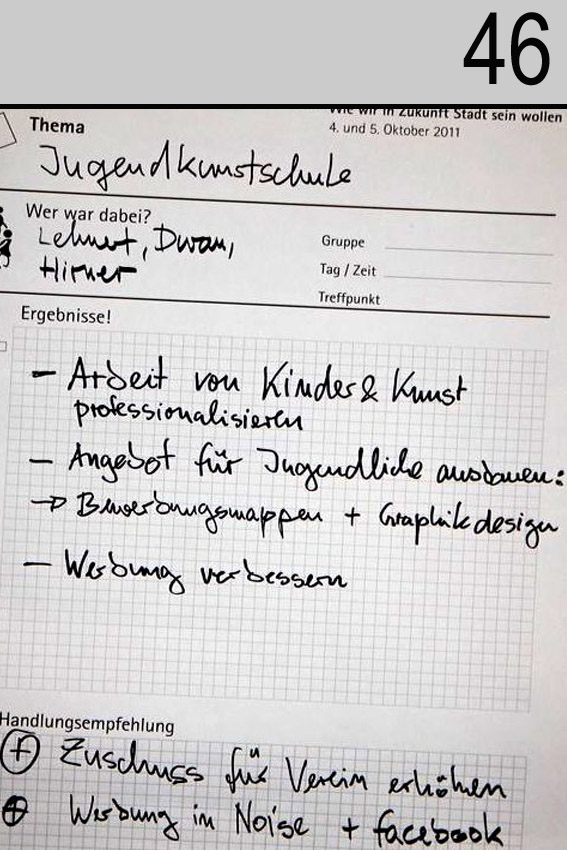 46
Wie wir in Zukunft Stadt sein wollen
Thema
4. und 5. Oktober 2011
Jugendkunstschule
Wer war dabei?
Lehnert, Dwan,
Gruppe
Hirner
Tag / Zeit
Treffpunkt
Ergebnisse!
– Arbeit von Kinder & Kunst
professionalisieren
– Angebot für Jugendliche ausbauen:
→ Bewerbungsmappen + Graphikdesign
– Werbung verbessern
Handlungsempfehlung
+ Zuschuss für Verein erhöhen
+ Werbung in Noise + facebook